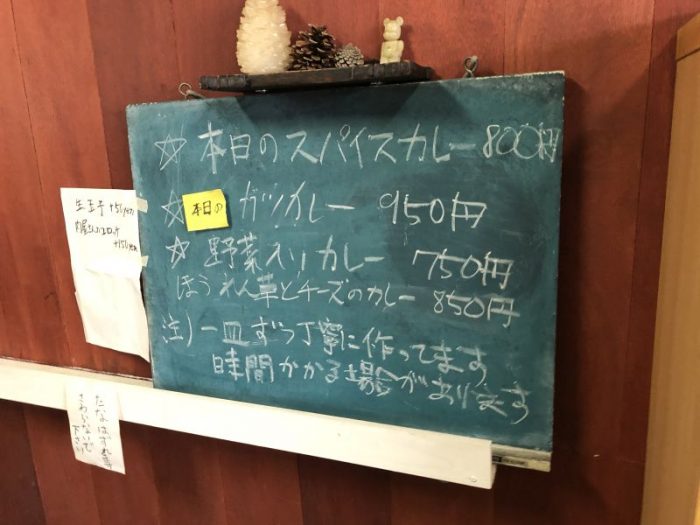 ☆本日のスパイスカレー 800円
☆本日の ガツカレー 950円
☆野菜入りカレー 750円
ほうれん草とチーズのカレー 850円
注)一皿ずつ丁寧に作ってます
時間かかる場合があります
生玉子 +50yen
+150yen
たなはずれ
さわらないで
下さい